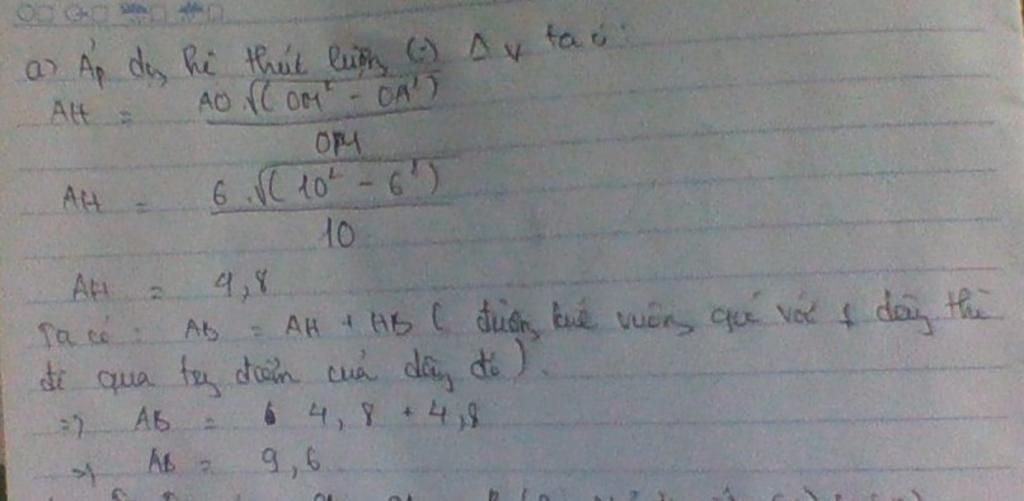 a) Áp dg hệ thức lượng (:) Δ v ta có:
AH = AO.√(OM² - OA²)
OM
AH = 6.√(10² - 6²)
10
AH = 4,8
Ta có: AB = AH + HB ( đường kính vuông góc với 1 dây thì
đi qua trg điểm của dây đó ).
=> AB = 4,8 + 4,8
=> AB = 9,6